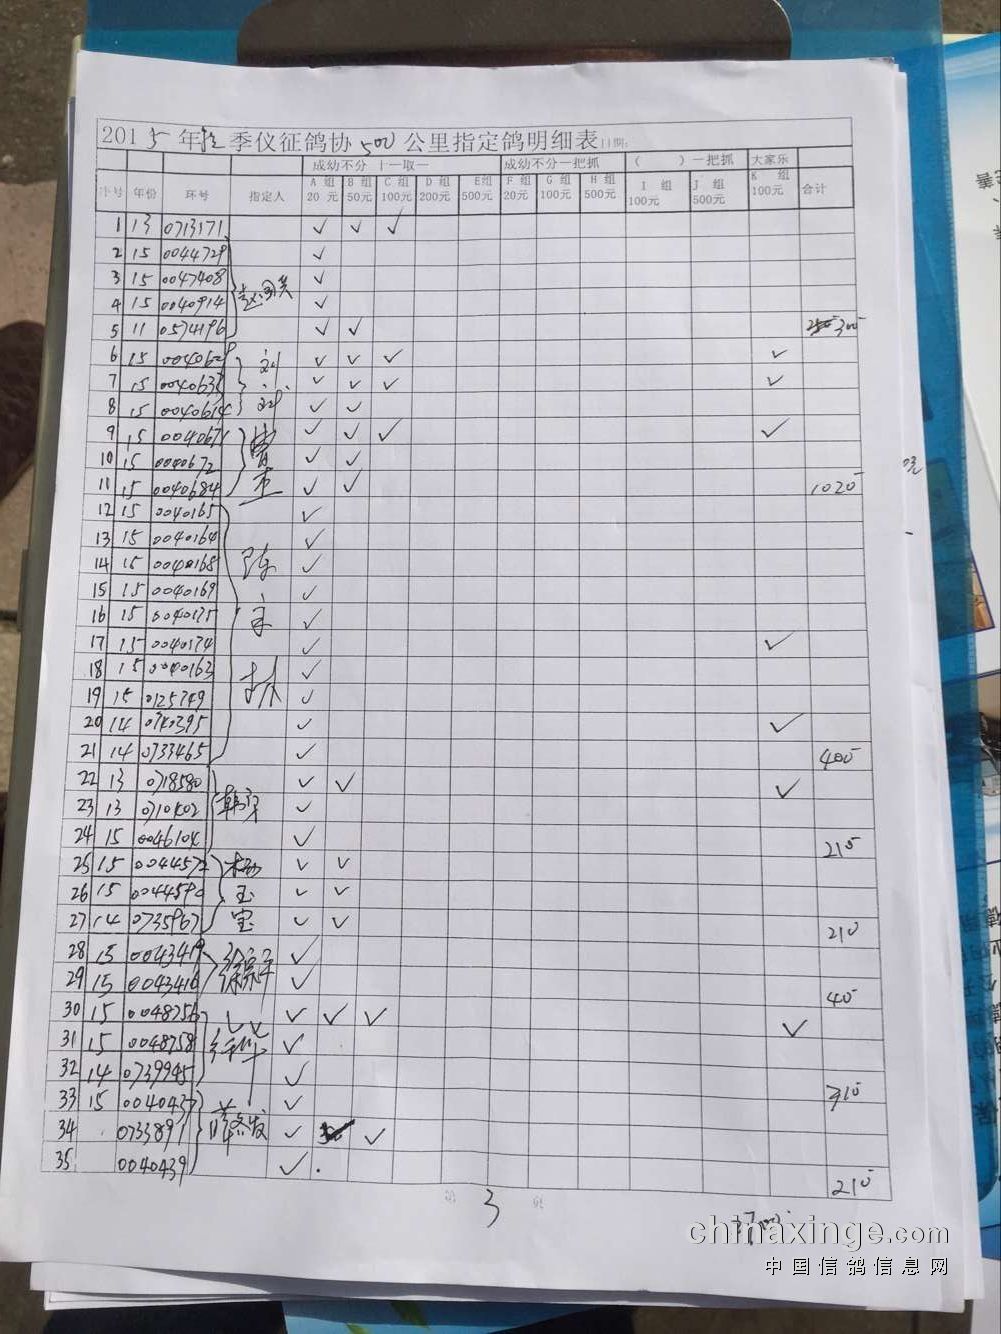 2015年 季仪征鸽协500公里指定鸽明细表 日期:
成幼不分 十一取一 成幼不分一把抓 ( )一把抓 大家乐
序号 年份 环号 指定人 A 组 20 元 B 组 50元 C 组 100元 D 组 200元 E组 500元 F 组 20元 G 组 100元 H 组 500元 I 组 100元 J 组 500元 K 组 100元 合计
1 13 0713171 ✓ ✓ ✓
2 15 0044729 ✓
3 15 0047408 ✓
4 15 0040914 ✓
5 11 0574196 ✓ ✓ 300
6 15 0040629 ✓ ✓ ✓ ✓
7 15 0040633 ✓ ✓ ✓ ✓
8 15 0040614 ✓ ✓
9 15 0040671 ✓ ✓ ✓ ✓
10 15 0040672 ✓ ✓
11 15 0040684 ✓ ✓ 1020
12 15 0040165 ✓
13 15 0040164 ✓
14 15 0040168 陈 ✓
15 15 0040169 ✓
16 15 0040175 ✓
17 15 0040174 ✓ ✓
18 15 0040163 ✓
19 15 0125749 ✓
20 14 0740395 ✓ ✓
21 14 0733465 ✓ 400
22 13 0718580 ✓ ✓ ✓
23 13 ✓
24 15 0046104 ✓ 210
25 15 0044572 杨 ✓ ✓
26 15 0044590 玉 ✓ ✓
27 14 0735967 宝 ✓ ✓ 210
28 15 0043419 ✓
29 15 0043416 ✓ 40
30 15 0048756 ✓ ✓ ✓ ✓
31 15 0048758 ✓
32 14 0739945 ✓ 310
33 15 0040437 ✓
34 0733891 ✓ ✓
35 0040439 ✓ 210
3
chinaxinge.com
中国信鸽信息网